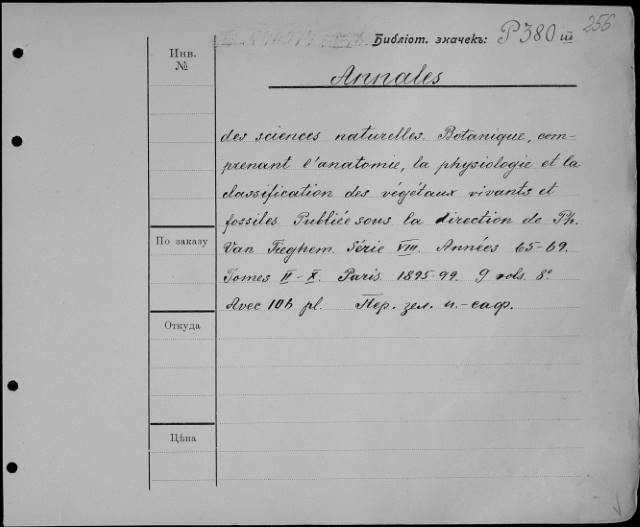 256
Библіот. значекъ: P 380 III
Инв. №
Annales
des sciences naturelles. Botanique, com-
prenant l'anatomie, la physiologie et la
classification des végétaux vivants et
fossiles Publiée sous la direction de Ph.
Van Tieghem. Série VIII. Années 65-69.
Tomes II-X. Paris. 1895-99. 9 vols. 8°
Avec 106 pl. Пер. зел. п.-саф.
По заказу
Откуда
Цѣна